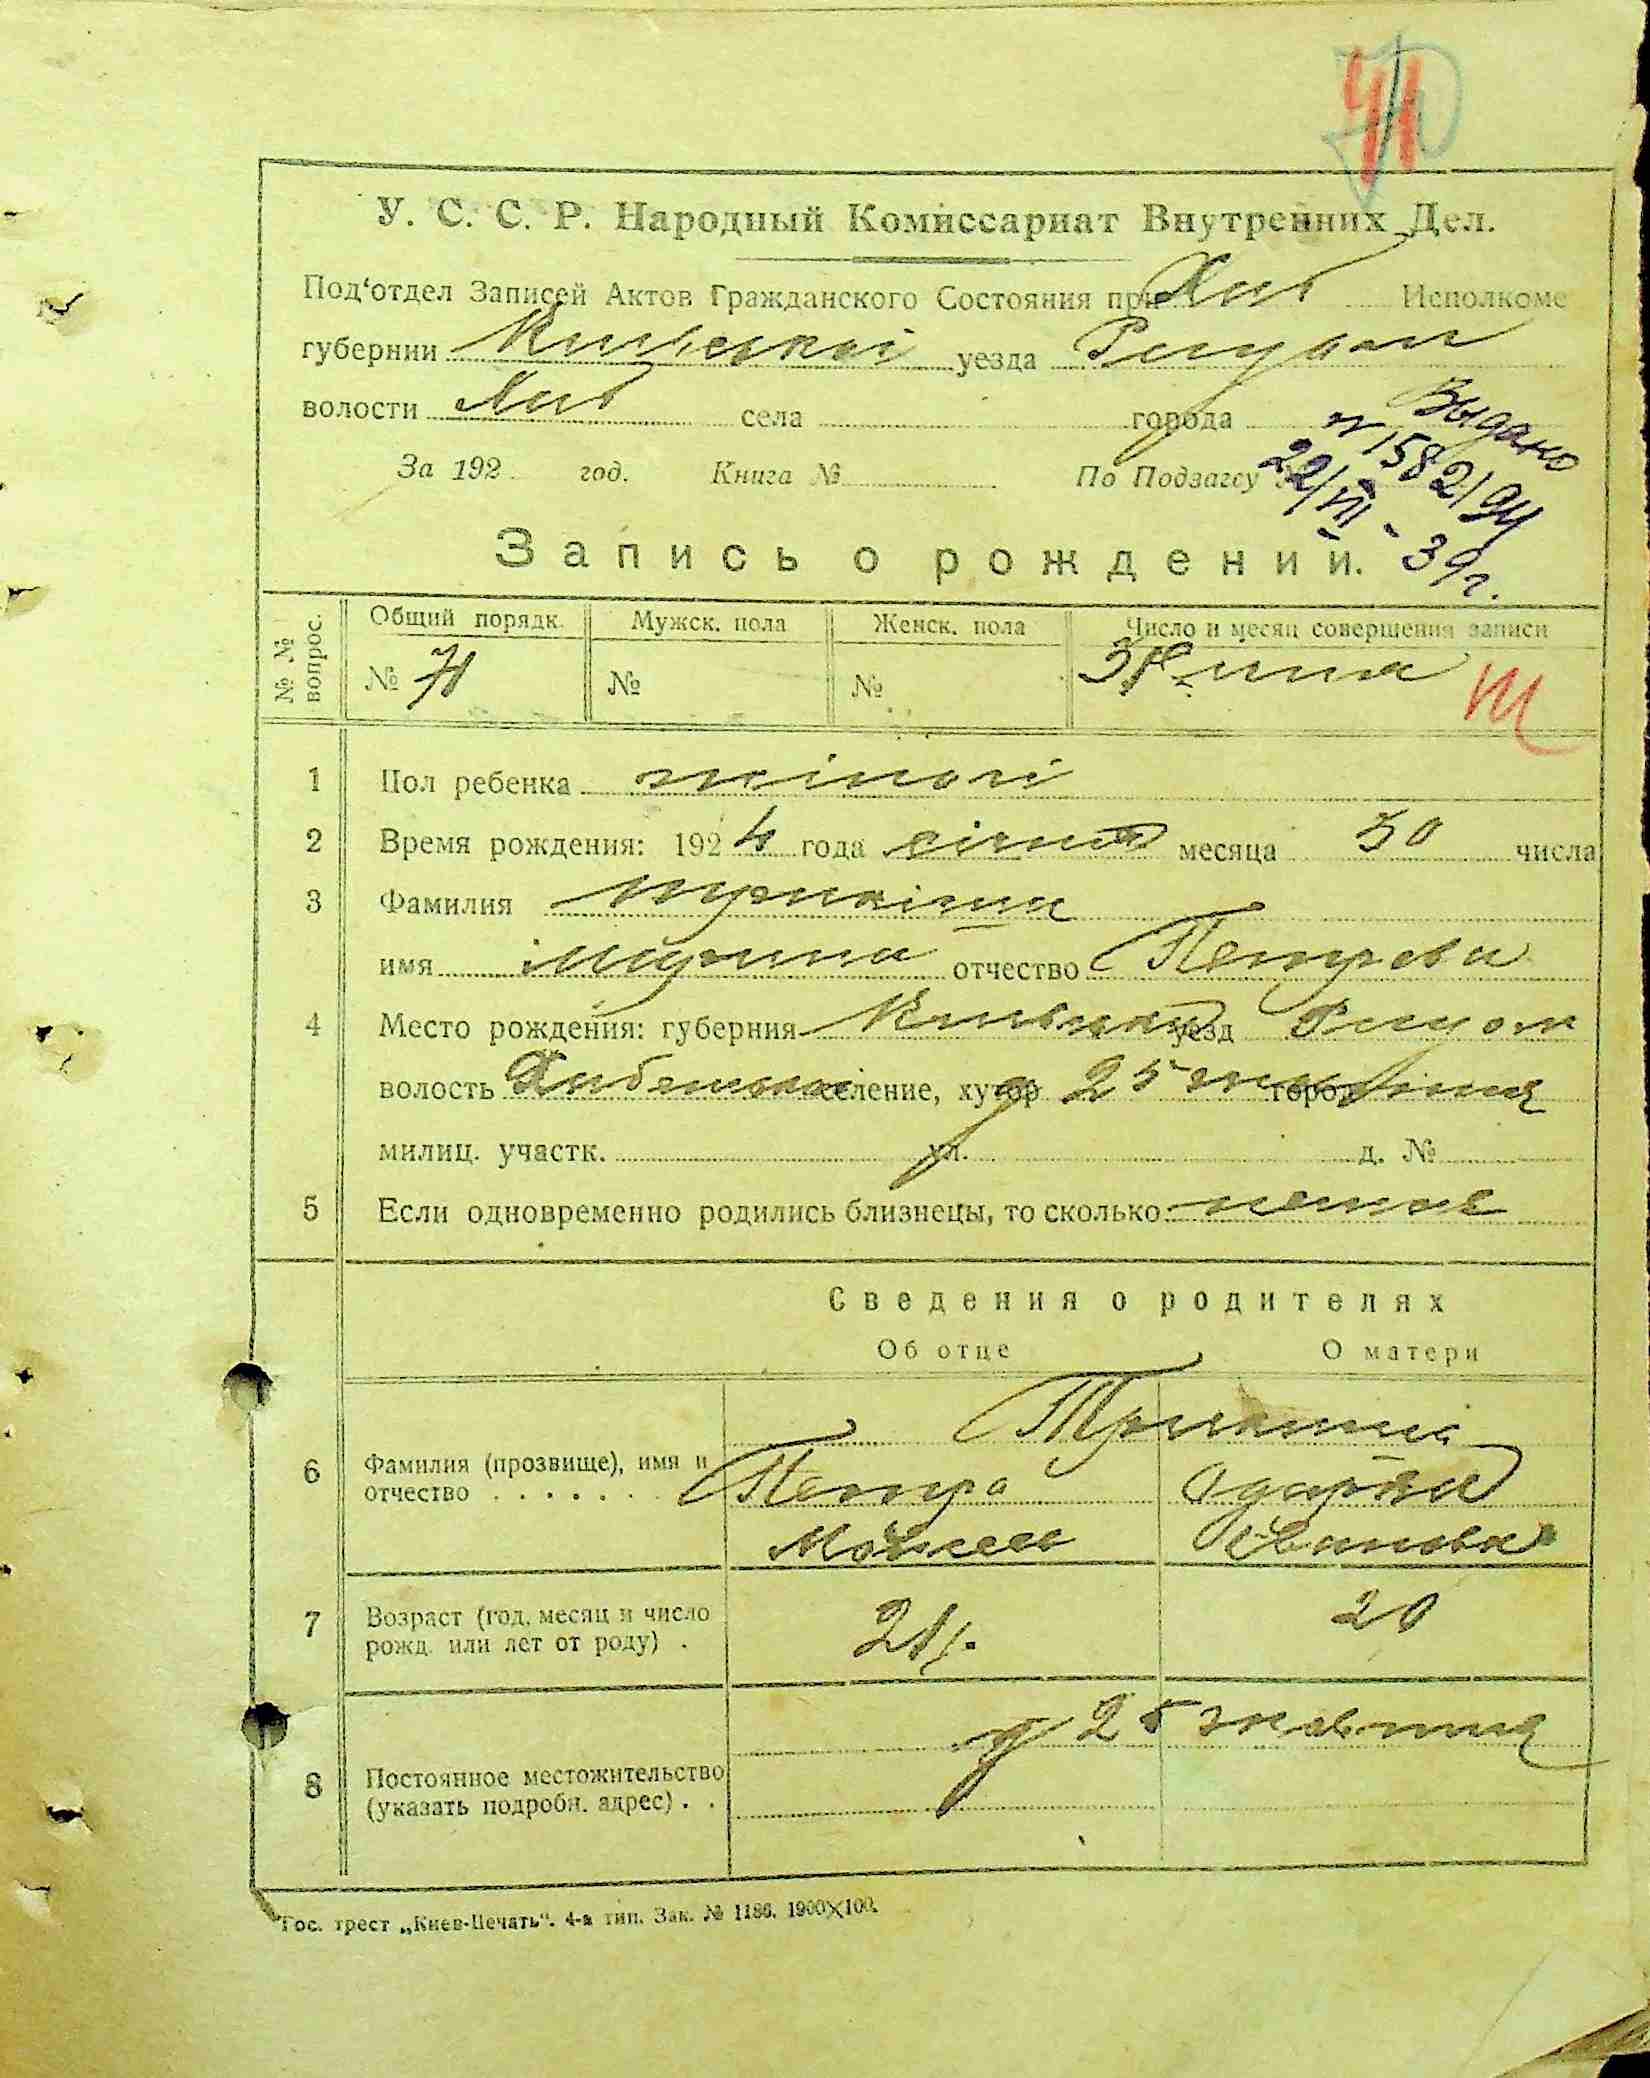 71
У. С. С. Р. Народный Комиссариат Внутренних Дел.
Под‘отдел Записей Актов Гражданского Состояния при Хиб Исполкоме
губернии уезда
волости Хиб села города
Выдано
№ 1582/94
22/VII - 39 г.
За 192 год. Книга № По Подзагсу №
Запись о рождении.
№№ вопрос. Общий порядк. Мужск. пола Женск. пола Число и месяц совершения записи
№ 71 № № 31 січня
1 Пол ребенка жіночі
2 Время рождения: 1924 года січня месяца 30 числа
3 Фамилия
имя отчество Петрова
4 Место рождения: губерния уезд
волость селение, хутор 25 город
милиц. участк. ул. д. №
5 Если одновременно родились близнецы, то сколько
Сведения о родителях
Об отце О матери
6 Фамилия (прозвище), имя и
отчество . . . . . . .
Петро Одарка
Мойсеев Іванова
7 Возраст (год, месяц и число
рожд. или лет от роду) .
21 20
25
8 Постоянное местожительство
(указать подробн. адрес) . .
Гос. трест „Киев-Печать“. 4-я тип. Зак. № 1186. 1900×100.